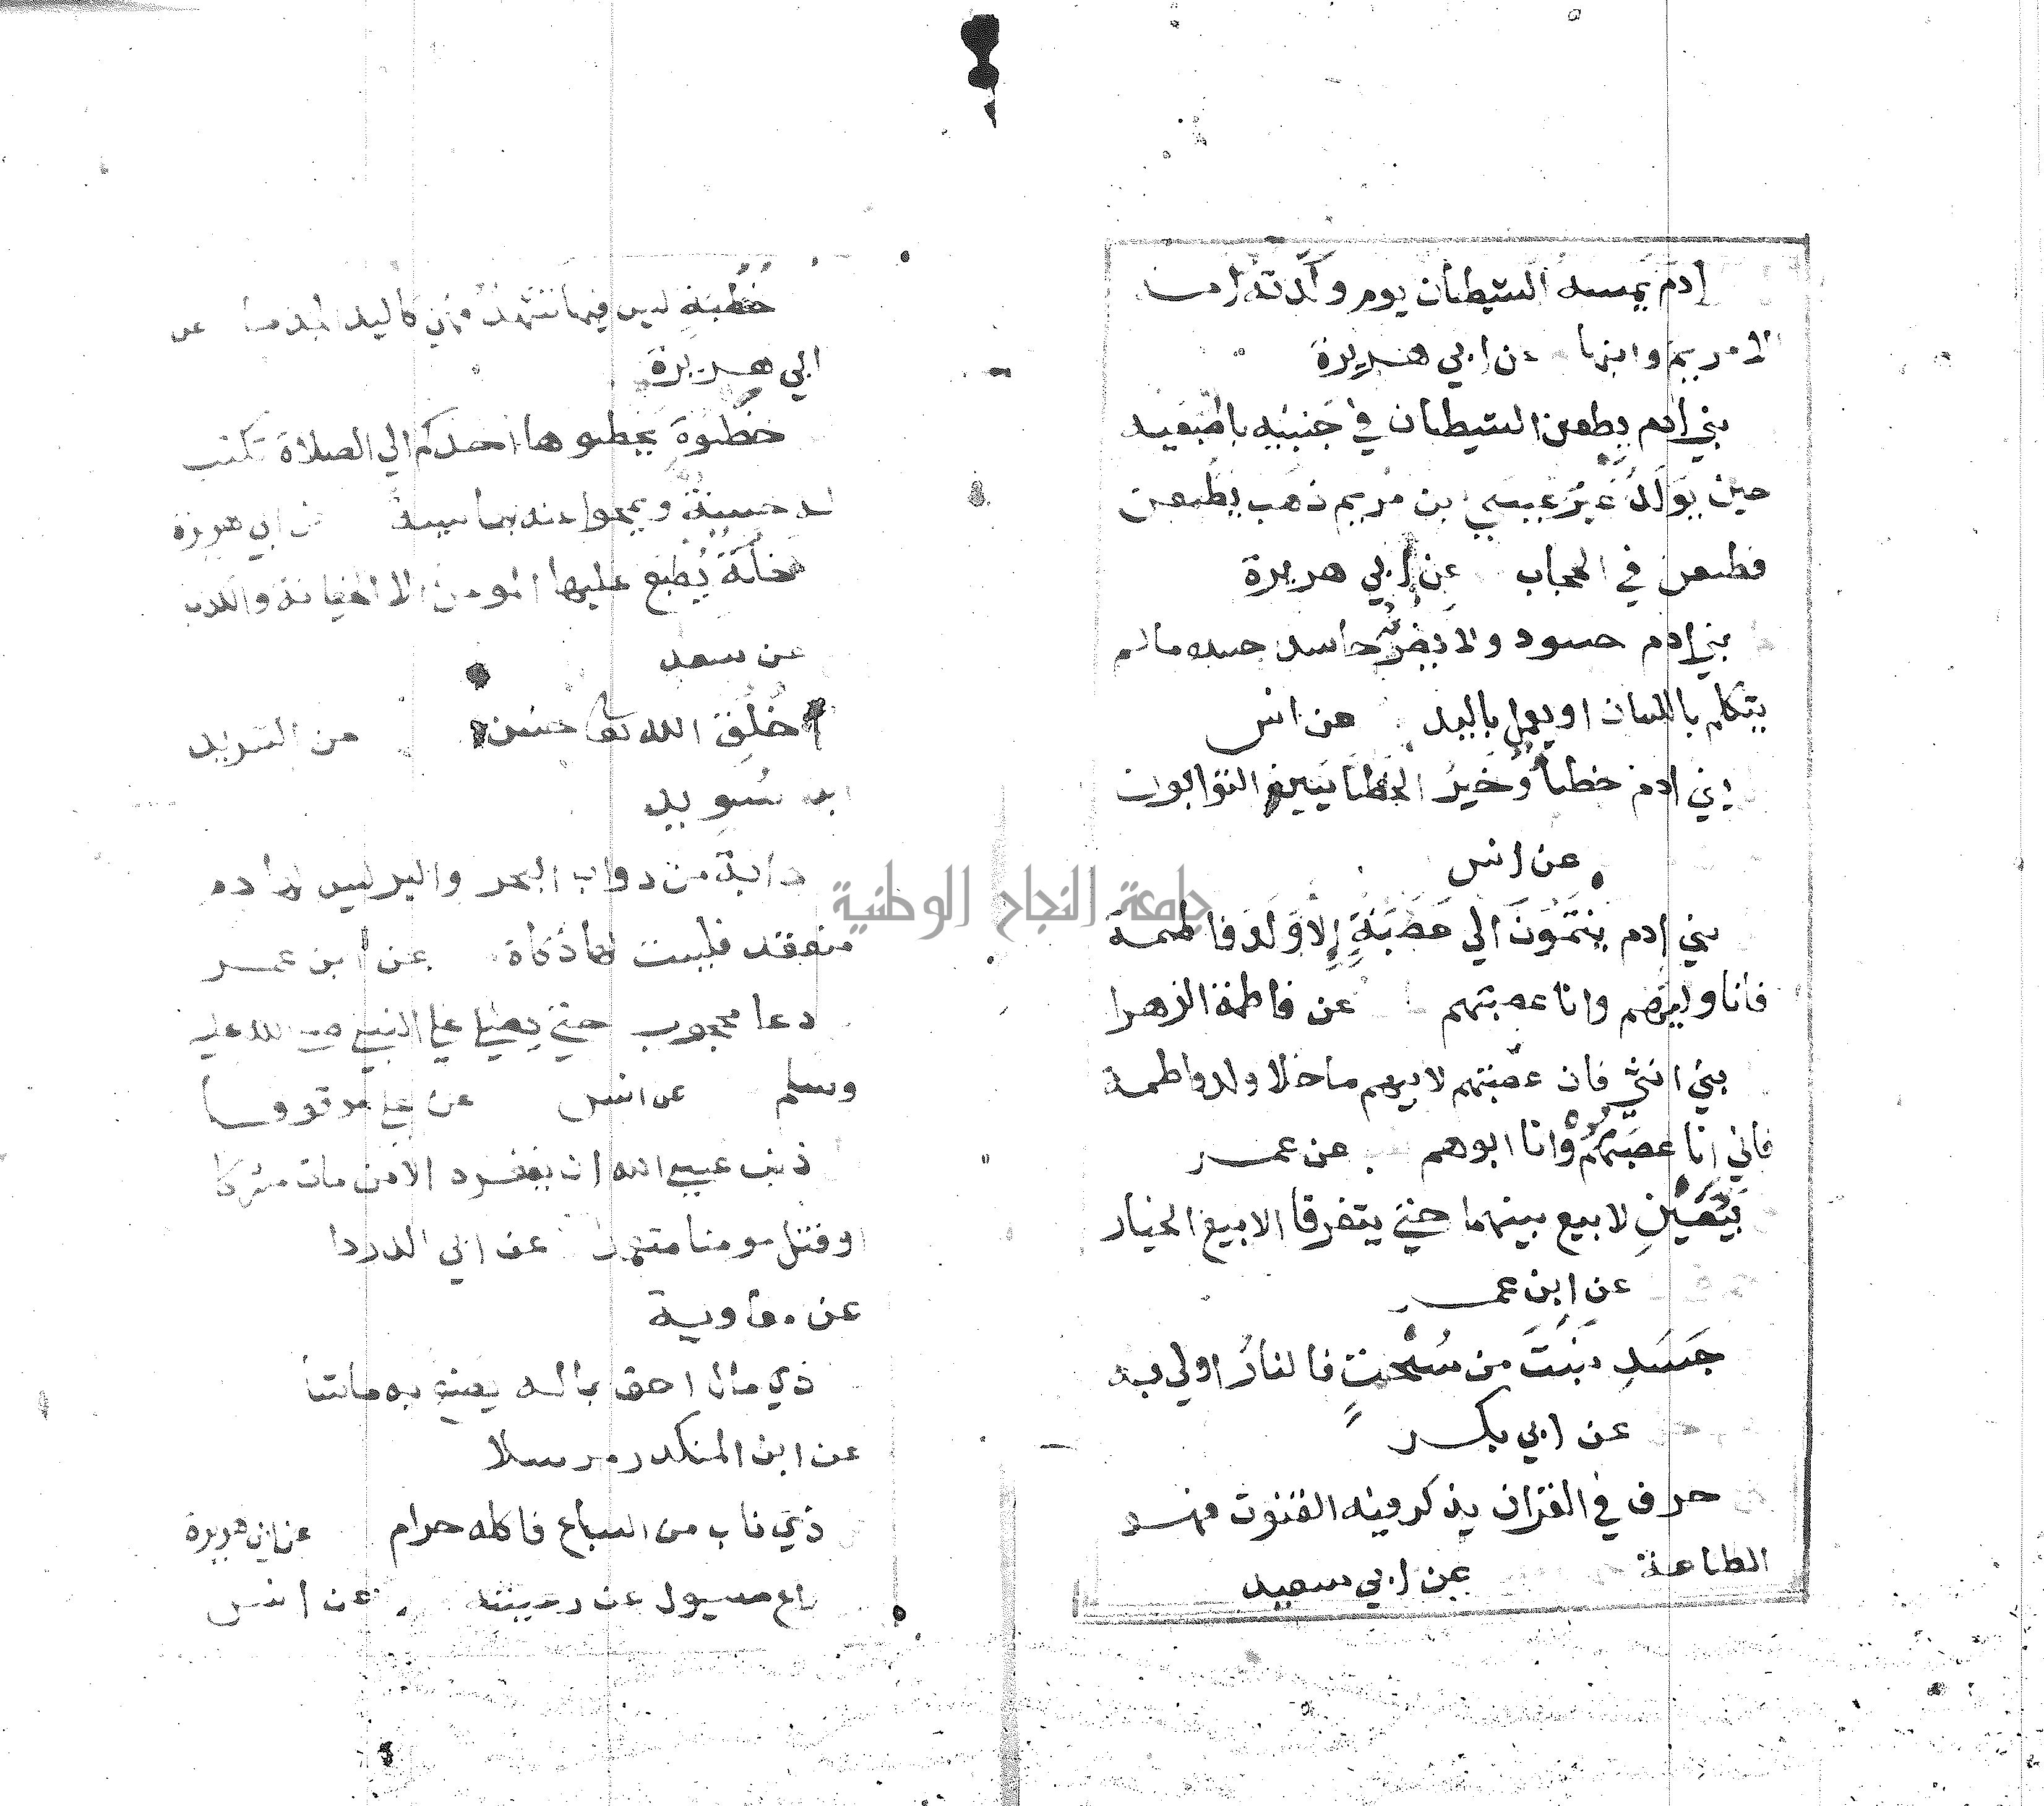 ادم يمسه الشيطان يوم ولدته امه
الا مريم وابنها عن ابي هريرة
بني ادم يطعن الشيطان في جنبيه باصبعيه
حين يولد غير عيسي بن مريم ذهب يطعن
فطعن في الحجاب عن ابي هريرة
بني ادم حسود ولا يضر حاسد حسده مالم
يتكلم باللسان او يعمل باليد عن انس
بني ادم خطأ وخير الخطايين التوابون
عن انس
بني ادم ينتمون الي عصبة إلا ولد فاطمة
فانا وليهم وانا عصبتهم عن فاطمة الزهرا
بني انثي فان عصبتهم لابيهم ماخلا ولد فاطمة
فاني انا عصبتهم وانا ابوهم عن عمر
بيعين لا بيع بينهما حتي يتفرقا الا بيع الخيار
عن ابن عمر
جسد نبت من سحت فالنار اولي به
عن ابي بكر
حرف في القران يذكر فيه القنوت فهو
الطاعة عن ابي سعيد
خطبة ليس فيها تشهد فهي كاليد الجذما عن
ابي هريرة
خطوة يخطوها احدكم الي الصلاة تكتب
له حسنة ويمحوا عنه بها سيية عن ابي هريرة
خلة يطبع عليها المومن الا الخيانة والكذب
عن سعد
خلق الله تعالي حسن عن الشريد
بن سويد
دابة من دواب البحر والبر ليس لها دم
منعقد فليست لها ذكاة عن ابن عمر
دعا محجوب حتي يصلي علي النبي صلي الله عليه
وسلم عن انس عن علي موقوفا
ذنب عسي الله ان يغفره الا من مات مشركا
او قتل مومنا متعمدا عن ابي الدردا
عن معاوية
ذي مال احق بماله يصنع به ماشا
عن ابن المنكدر مرسلا
ذي ناب من السباع فاكله حرام عن ابي هريرة
راع مسيول عن رعيته عن انس
جامعة النجاح الوطنية